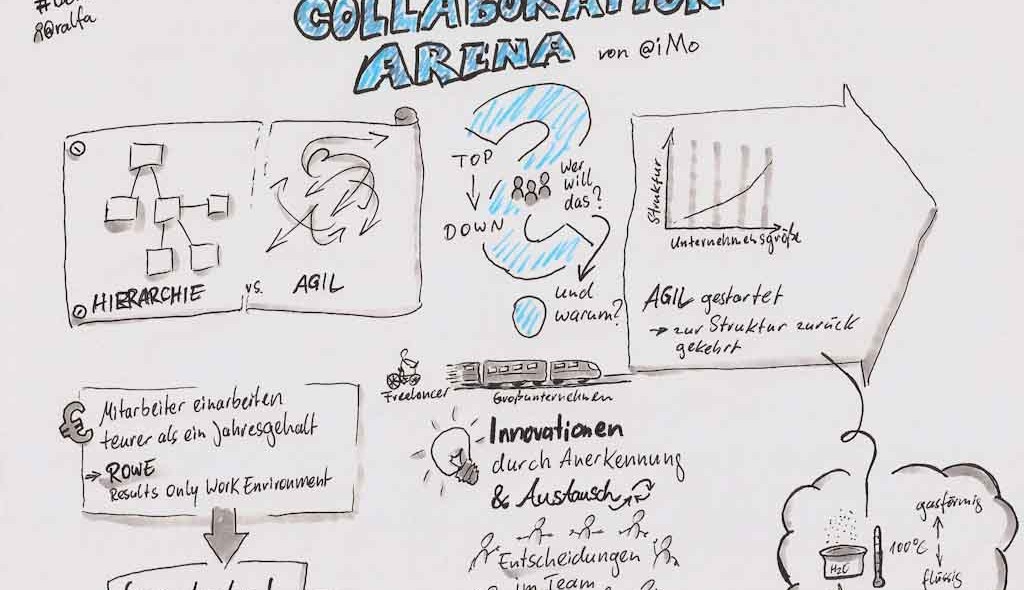 @ralfa
COLLABORATION
ARENA von @iMo
HIERARCHIE
vs.
AGIL
TOP
DOWN
Wer
will
das?
und
warum?
Struktur
Unternehmensgröße
AGIL gestartet
→ zur Struktur zurück
gekehrt
Freelancer
Großunternehmen
€ Mitarbeiter einarbeiten
teurer als ein Jahresgehalt
→ ROWE
Results Only Work Environment
Innovationen
durch Anerkennung
& Austausch
Entscheidungen
im Team
gasförmig
100°C
H2O
flüssig